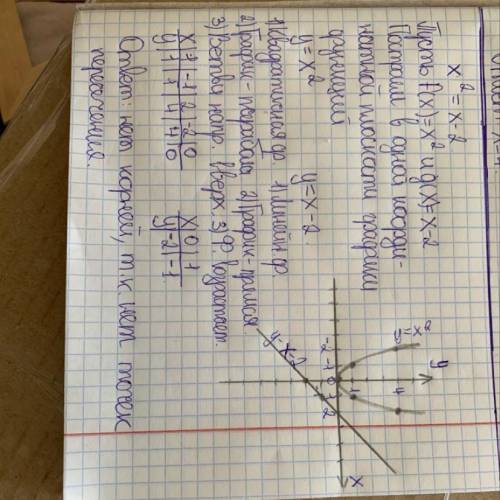 x² = x-2
Пусть f(x)=x² и g(x)=x-2
Построим в одной коорди-
натной плоскости графики
функций
y=x²
y=x-2
1) Квадратичная ф.
1) Линейн. ф.
2) График - парабола
2) График - прямая
3) Ветви напр. вверх.
3) Ф. возрастает.
x 1 -1 2 -2 0
y 1 1 4 4 0
x 0 1
y -2 -1
Ответ: нет корней, т.к. нет точек
пересечения.
y
y=x²
4
1
-2 -1 0 1 2
x
y=x-2